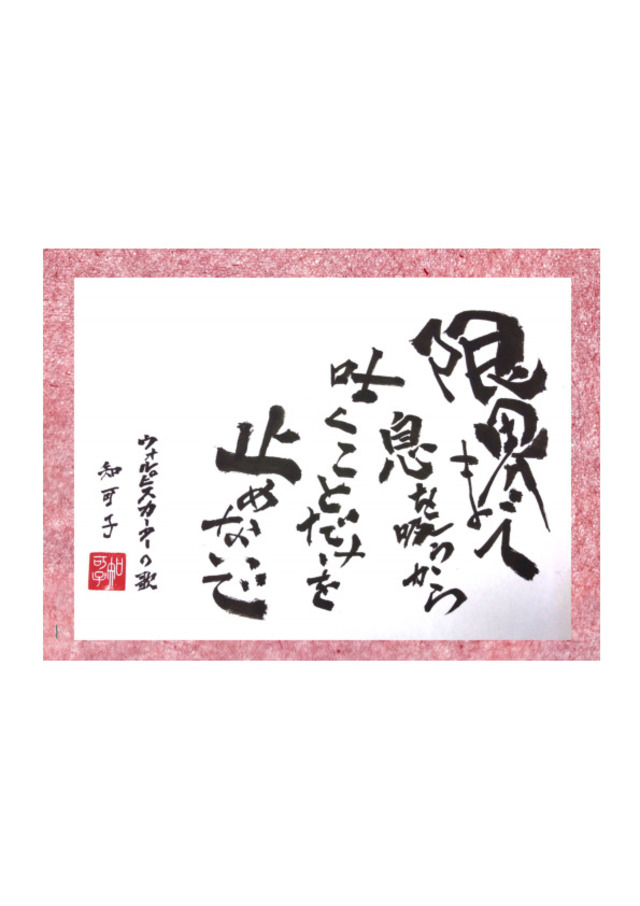 限界まで
息を吸うから
吐くことだけを
止めないで
ウォルピスカーターの歌
知可子